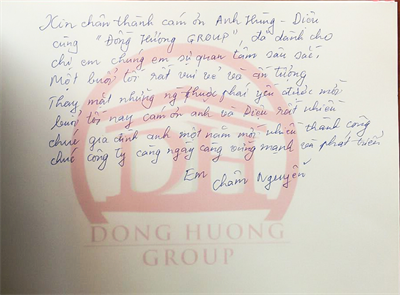 Xin chân thành cám ơn Anh Hùng - Diều
cùng "Đồng Hương GROUP", đã dành cho
chị em chúng em sự quan tâm sâu sắc,
Một buổi tối rất vui vẻ và ấn tượng
Thay mặt những ng thuộc phái yếu được mời
buổi tối nay cám ơn anh và Diều rất nhiều
chúc gia đình anh một năm mới nhiều thành công
chúc công ty càng ngày càng vững mạnh và phát triển
Em
Châm Nguyễn
DONG HUONG
GROUP